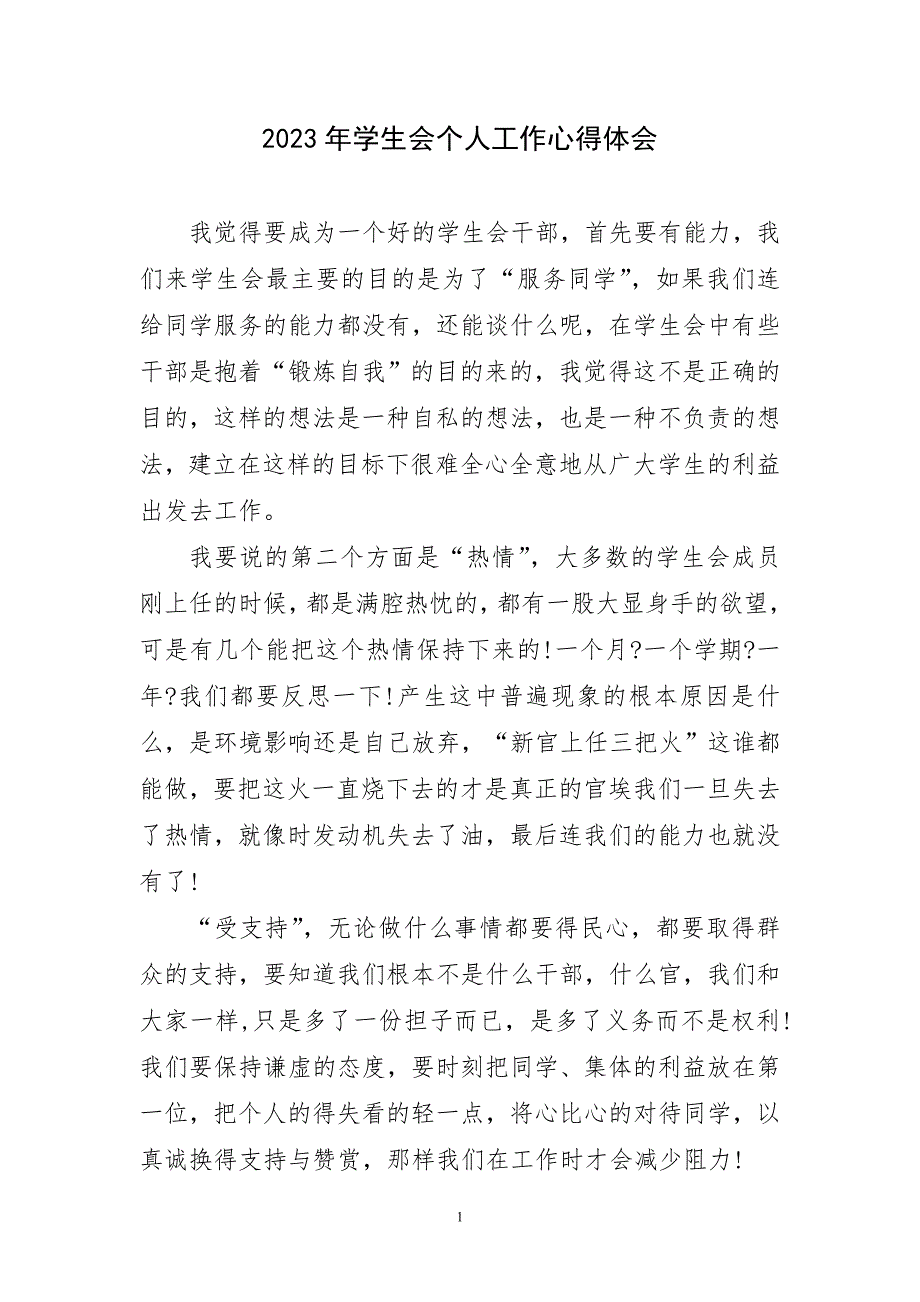 2023年学生会个人工作心得体会
我觉得要成为一个好的学生会干部，首先要有能力，我
们来学生会最主要的目的是为了“服务同学”，如果我们连
给同学服务的能力都没有，还能谈什么呢，在学生会中有些
干部是抱着“锻炼自我”的目的来的，我觉得这不是正确的
目的，这样的想法是一种自私的想法，也是一种不负责的想
法，建立在这样的目标下很难全心全意地从广大学生的利益
出发去工作。
我要说的第二个方面是“热情”，大多数的学生会成员
刚上任的时候，都是满腔热忱的，都有一股大显身手的欲望，
可是有几个能把这个热情保持下来的!一个月?一个学期?一
年?我们都要反思一下!产生这中普遍现象的根本原因是什
么，是环境影响还是自己放弃，“新官上任三把火”这谁都
能做，要把这火一直烧下去的才是真正的官埃我们一旦失去
了热情，就像时发动机失去了油，最后连我们的能力也就没
有了!
“受支持”，无论做什么事情都要得民心，都要取得群
众的支持，要知道我们根本不是什么干部，什么官，我们和
大家一样,只是多了一份担子而已，是多了义务而不是权利!
我们要保持谦虚的态度，要时刻把同学、集体的利益放在第
一位，把个人的得失看的轻一点，将心比心的对待同学，以
真诚换得支持与赞赏，那样我们在工作时才会减少阻力!
1